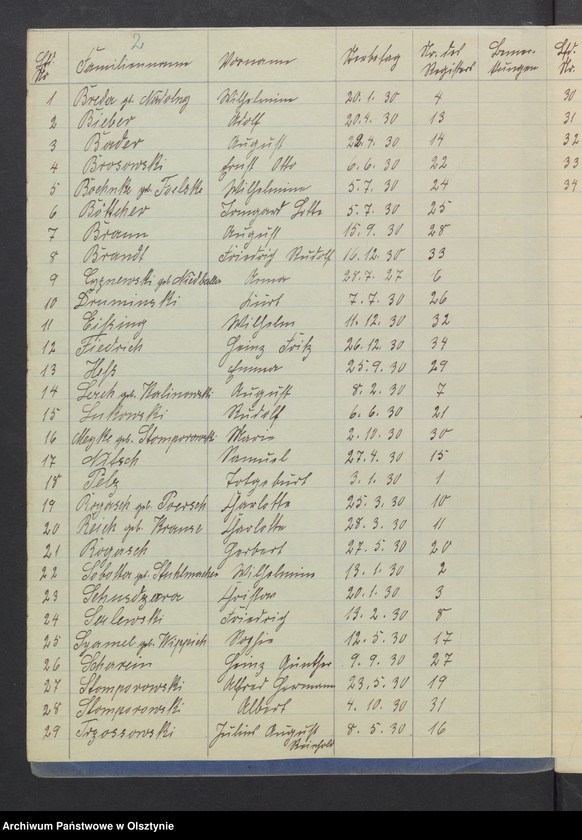 2
Lfd. Nr. Familienname Vorname Sterbetag Nr. des Registers Bemerkungen Lfd. Nr.
1 Breda geb. Wilhelmine 20.1.30 4 30
2 Bieber Adolf 20.4.30 13 31
3 Bader August 22.4.30 14 32
4 Brosowski Ernst Otto 6.6.30 22 33
5 Bochnke geb. Wilhelmine 5.7.30 24 34
6 Böttcher Irmgard Lotte 5.7.30 25
7 Braun August 15.9.30 28
8 Brandt Friedrich Rudolf 16.12.30 33
9 Cygnewski geb. Niedballa Anna 28.7.27 6
10 Druminski Kurt 7.7.30 26
11 Eissing Wilhelm 11.12.30 32
12 Fiedrich Heinz Fritz 26.12.30 34
13 Hess Emma 25.9.30 29
14 Lerch geb. Kalinowski August 8.2.30 7
15 Lukowski Rudolf 6.6.30 21
16 geb. Stomporowski Marie 2.10.30 30
17 Nitsch Samuel 27.4.30 15
18 Pelz Totgeburt 3.1.30 1
19 Rogasch geb. Poersch Charlotte 25.3.30 10
20 Reich geb. Krause Charlotte 28.3.30 11
21 Rogasch Herbert 27.5.30 20
22 Sobotta geb. Stuhlmacher Wilhelmine 13.1.30 2
23 Schusdzara Christine 20.1.30 3
24 Salewski Friedrich 13.2.30 8
25 geb. Wippich Sophie 12.5.30 17
26 Scharein Heinz Günther 9.9.30 27
27 Stomporowski Alfred Hermann 23.5.30 19
28 Stomporowski Albert 4.10.30 31
29 Trzossowski Julius August 8.5.30 16
Reinhold
Archiwum Państwowe w Olsztynie